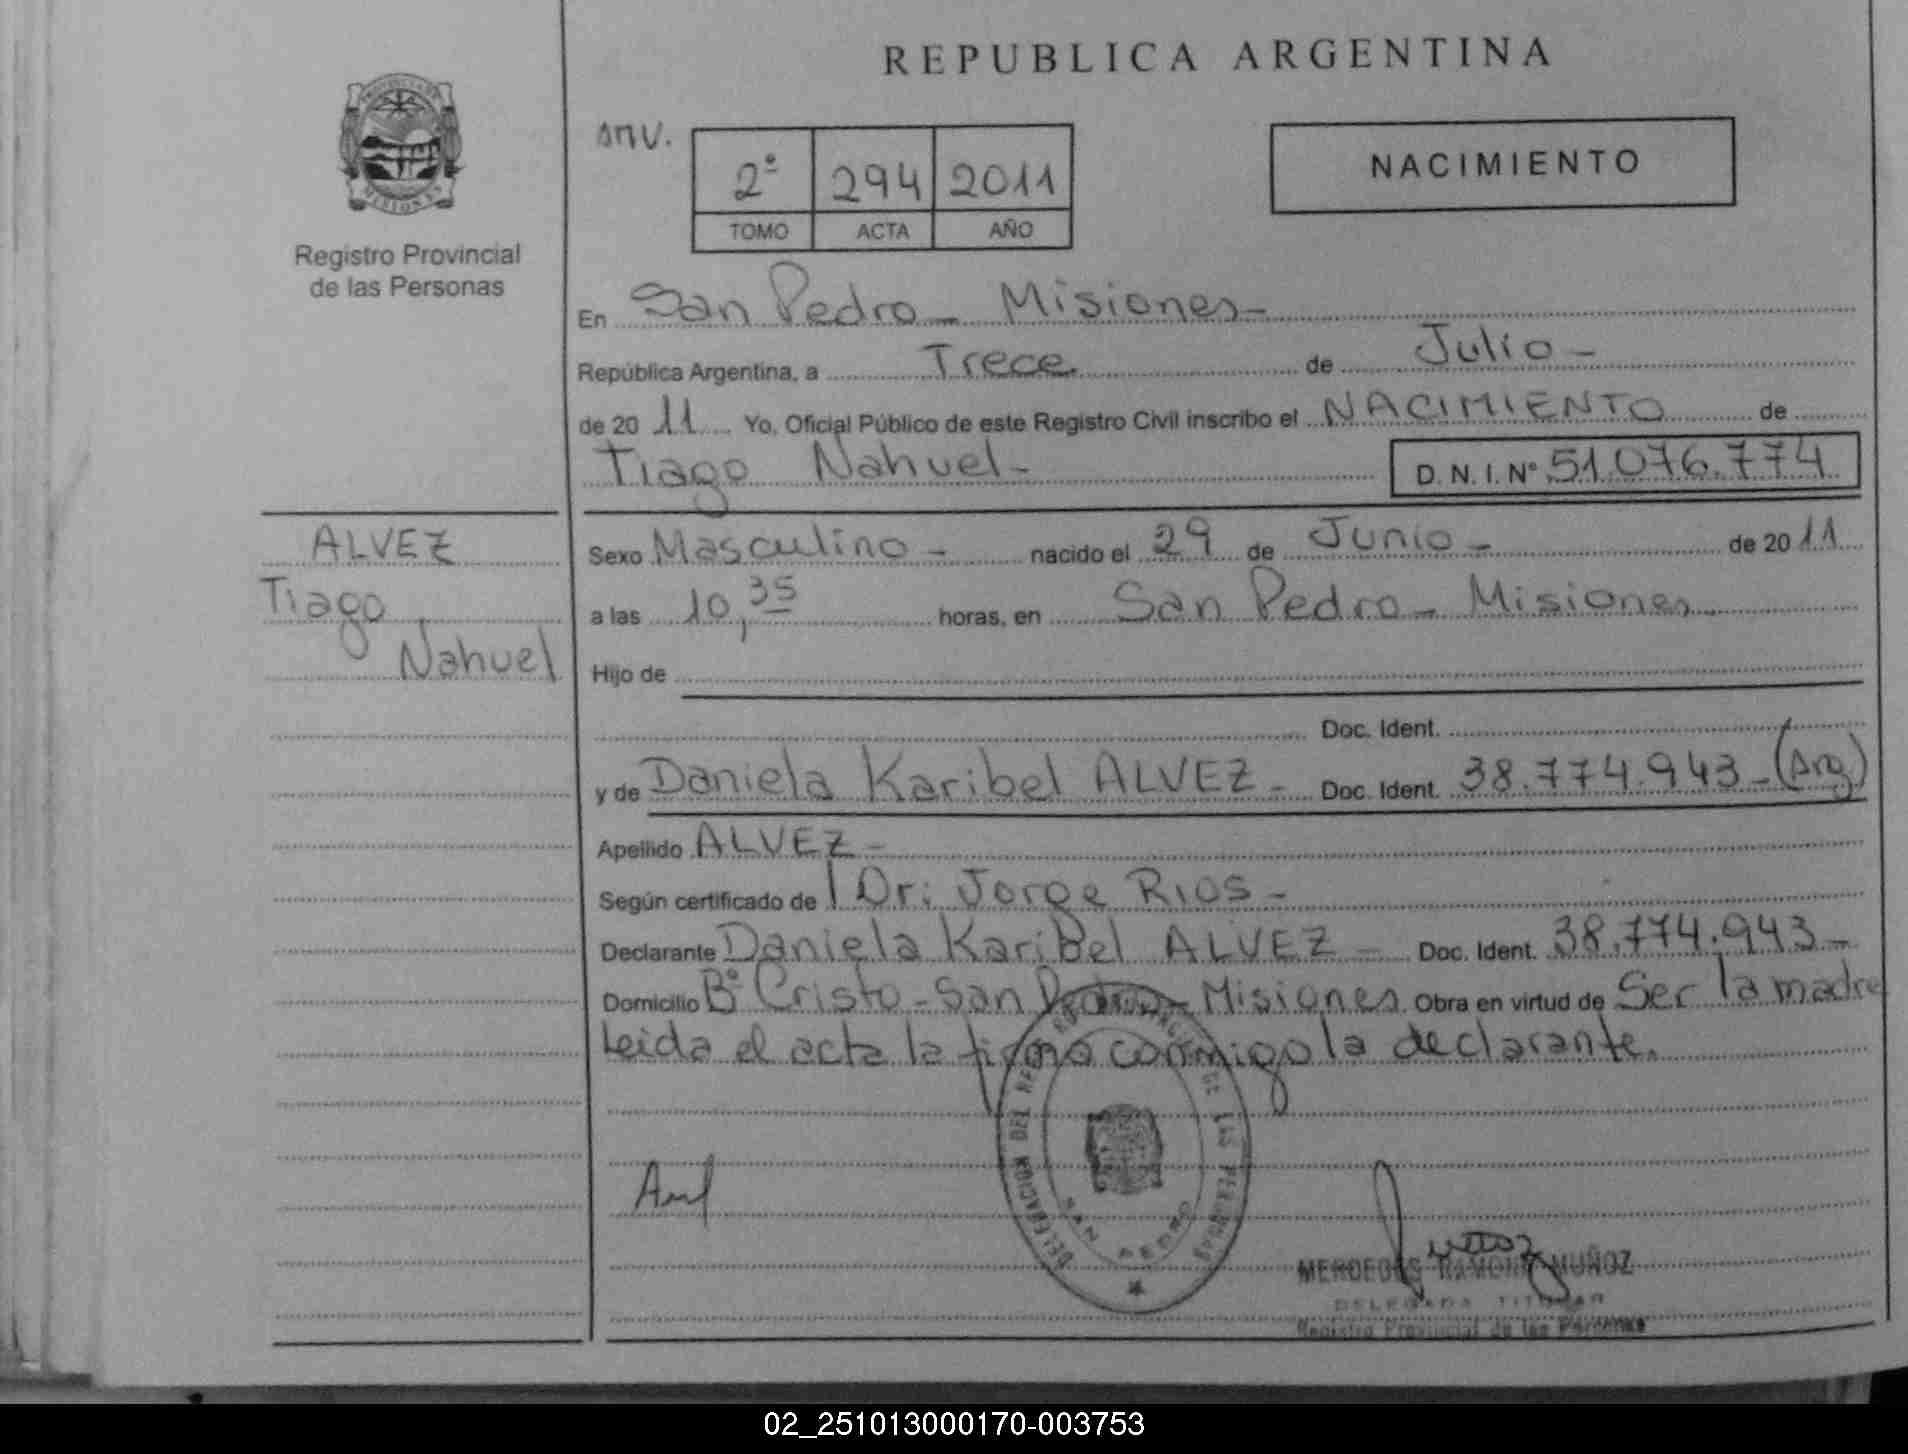 REPUBLICA ARGENTINA
PROVINCIA DE
MISIONES
Registro Provincial
de las Personas
2º 294 2011
TOMO ACTA AÑO
NACIMIENTO
En San Pedro - Misiones -
República Argentina, a Trece de Julio -
de 20 11 Yo, Oficial Público de este Registro Civil inscribo el NACIMIENTO de
Tiago Nahuel - D. N. I. Nº 51.076.774
ALVEZ
Tiago
Nahuel
Sexo Masculino - nacido el 29 de Junio - de 20 11
a las 10,35 horas, en San Pedro - Misiones
Hijo de
Doc. Ident.
y de Daniela Karibel ALVEZ - Doc. Ident. 38.774.943 - (Arg)
Apellido ALVEZ -
Según certificado de Dr: Jorge RIOS -
Declarante Daniela Karibel ALVEZ - Doc. Ident. 38.774.943 -
Domicilio Bº Cristo - San Pedro - Misiones. Obra en virtud de Ser la madre
Leida el acta la firma conmigo la declarante.
DELEGACION DEL REGISTRO PROVINCIAL DE LAS PERSONAS
SAN PEDRO
MERCEDES RAMONA MUÑOZ
DELEGADA TITULAR
Registro Provincial de las Personas
02_251013000170-003753